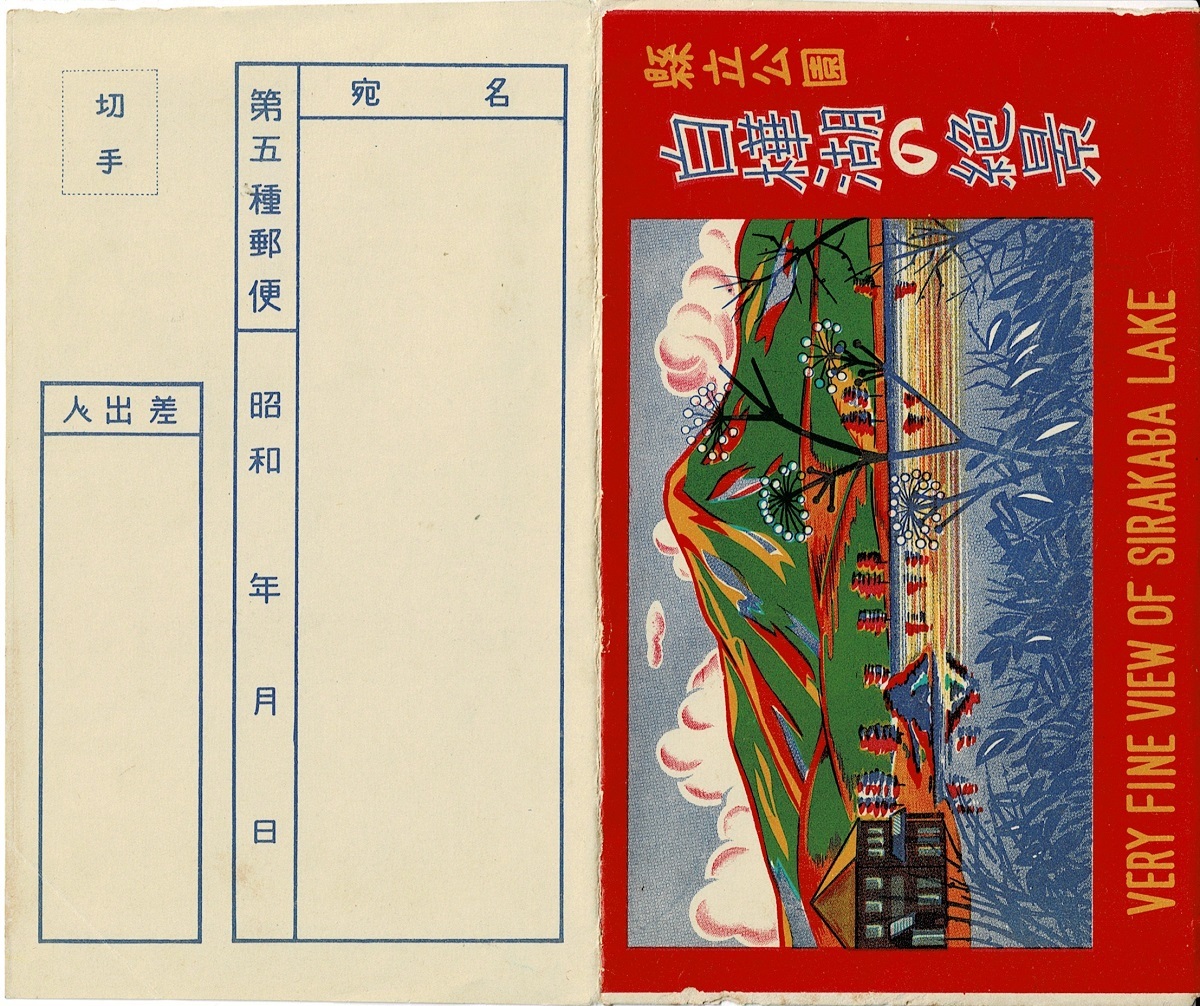 縣立公園
白樺湖の絶景
VERY FINE VIEW OF SIRAKABA LAKE
宛名
第五種郵便
昭和 年 月 日
切手
差出人